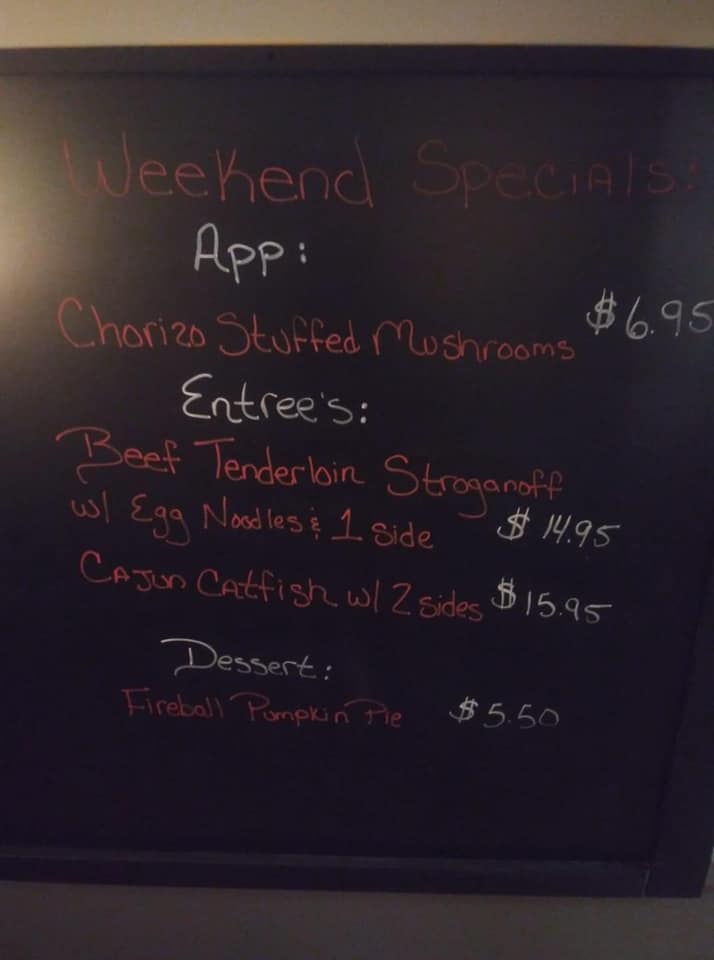 Weekend Specials:
App:
Chorizo Stuffed Mushrooms $6.95
Entree's:
Beef Tenderloin Stroganoff
w/ Egg Noodles & 1 Side $14.95
Cajun Catfish w/ 2 sides $15.95
Dessert:
Fireball Pumpkin Pie $5.50